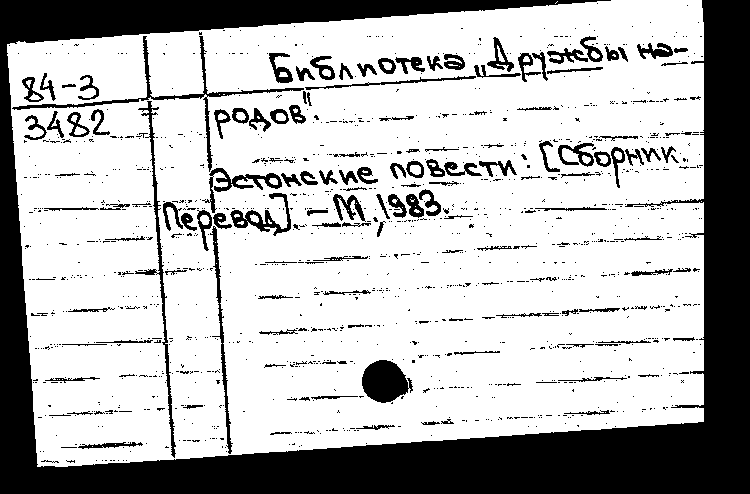 84-3
3482
Библиотека „Дружбы на-
родов".
Эстонские повести: [Сборник.
Перевод]. – М., 1983.